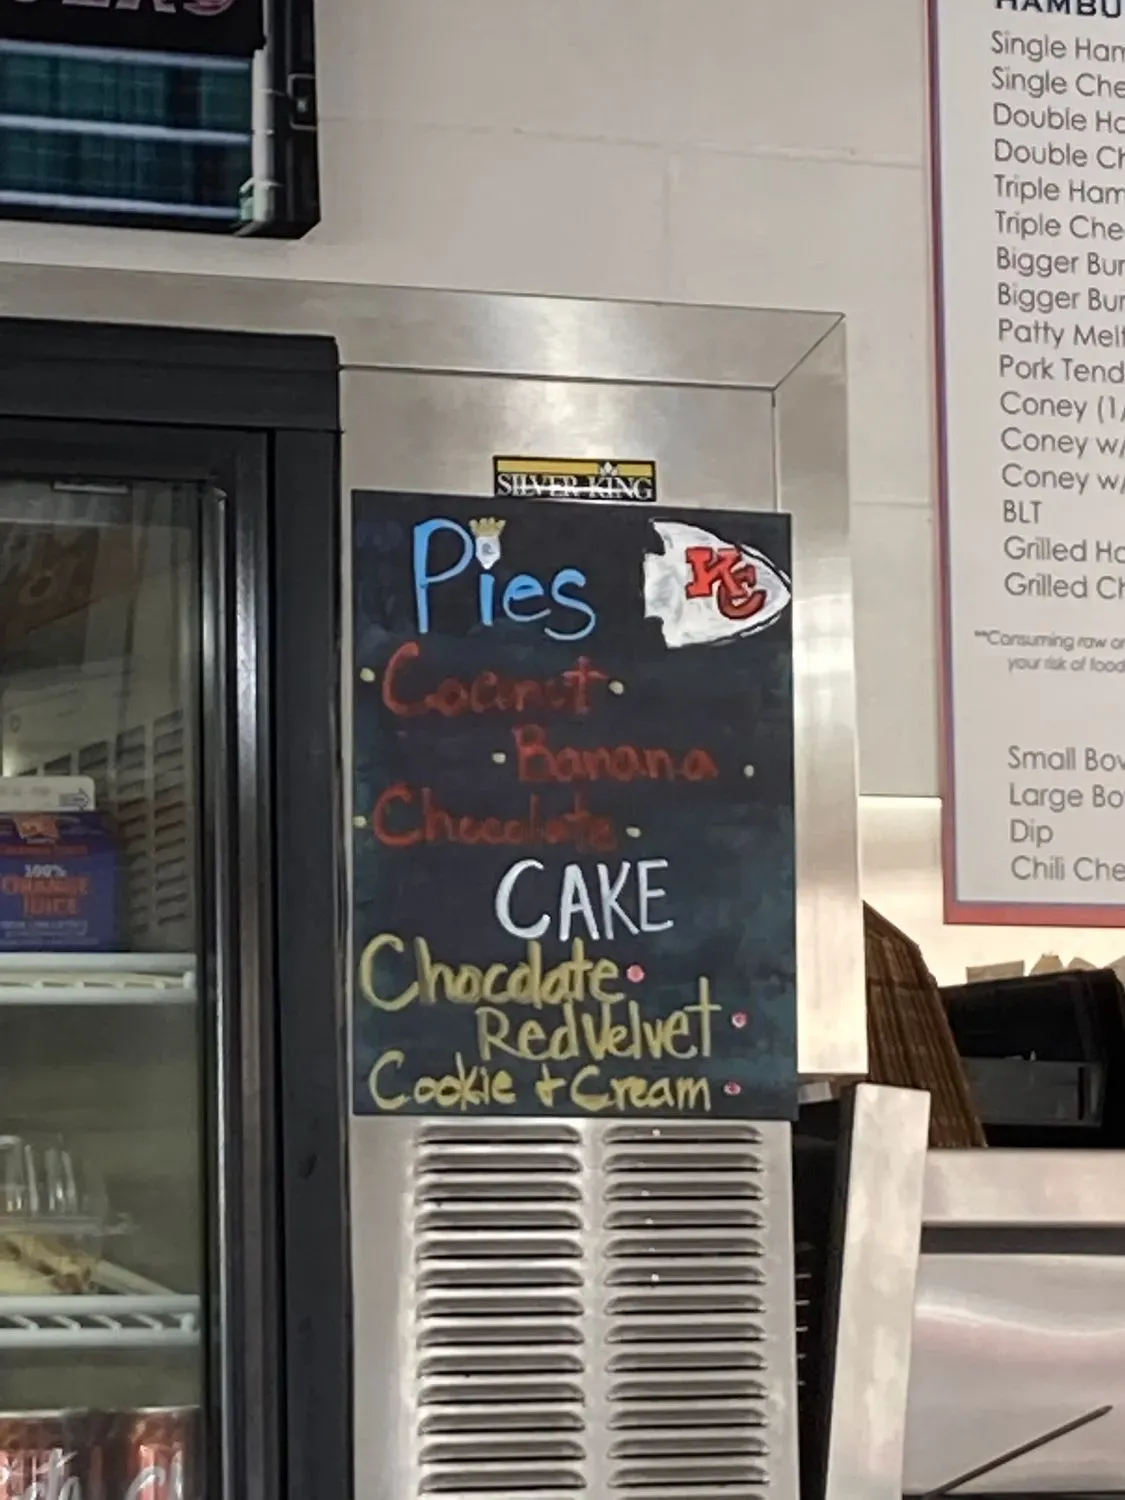 SILVER KING
Pies
KC
Coconut
Banana
Chocolate
CAKE
Chocolate
Red Velvet
Cookie + Cream
100%
ORANGE
JUICE
HAMBU
Single Ham
Single Che
Double Ha
Double Ch
Triple Ham
Triple Che
Bigger Bur
Bigger Bur
Patty Melt
Pork Tend
Coney (1/
Coney w/
Coney w/
BLT
Grilled Ha
Grilled Ch
**Consuming raw or
your risk of food
Small Bow
Large Bo
Dip
Chili Che